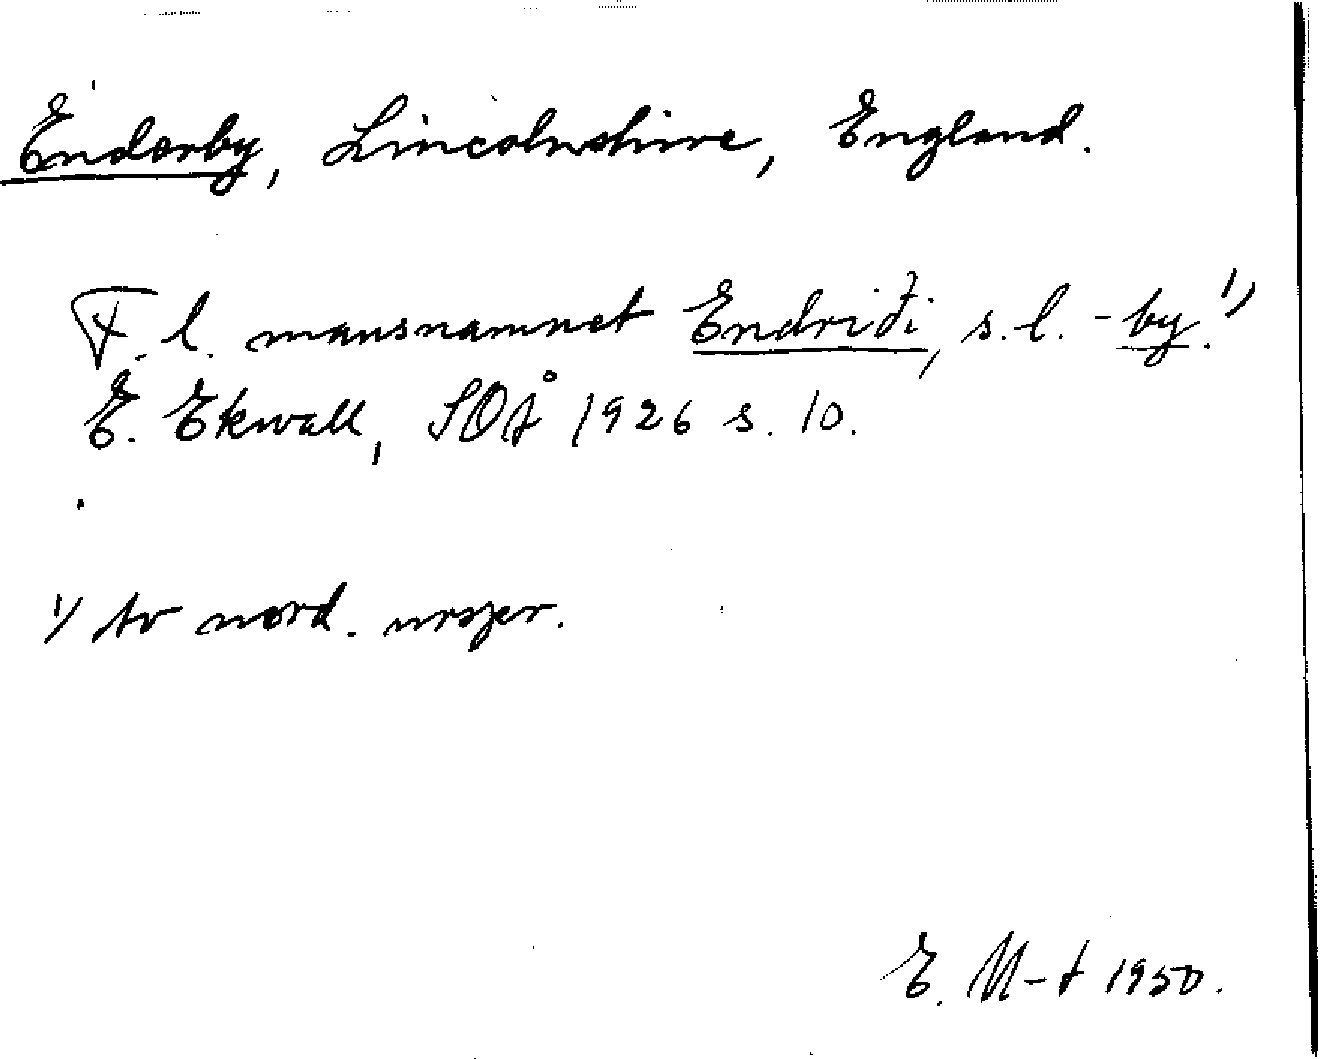 Enderby, Lincolnshire, England.
F. l. mansnamnet Endriði, s. l. -by.¹⁾
E. Ekwall, SOÅ 1926 s. 10.
¹⁾ Av nord. urspr.
E. M-t 1950.